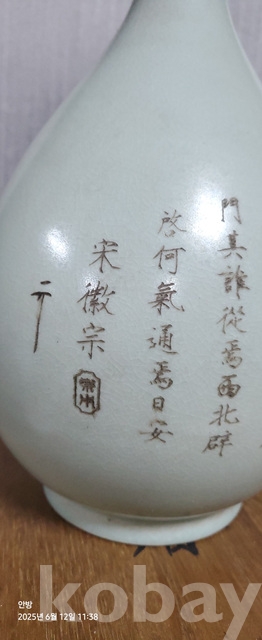 門其誰從焉西北辟
啓何氣通焉日安
宋徽宗
안방
2025년 6월 12일 11:38
kobay